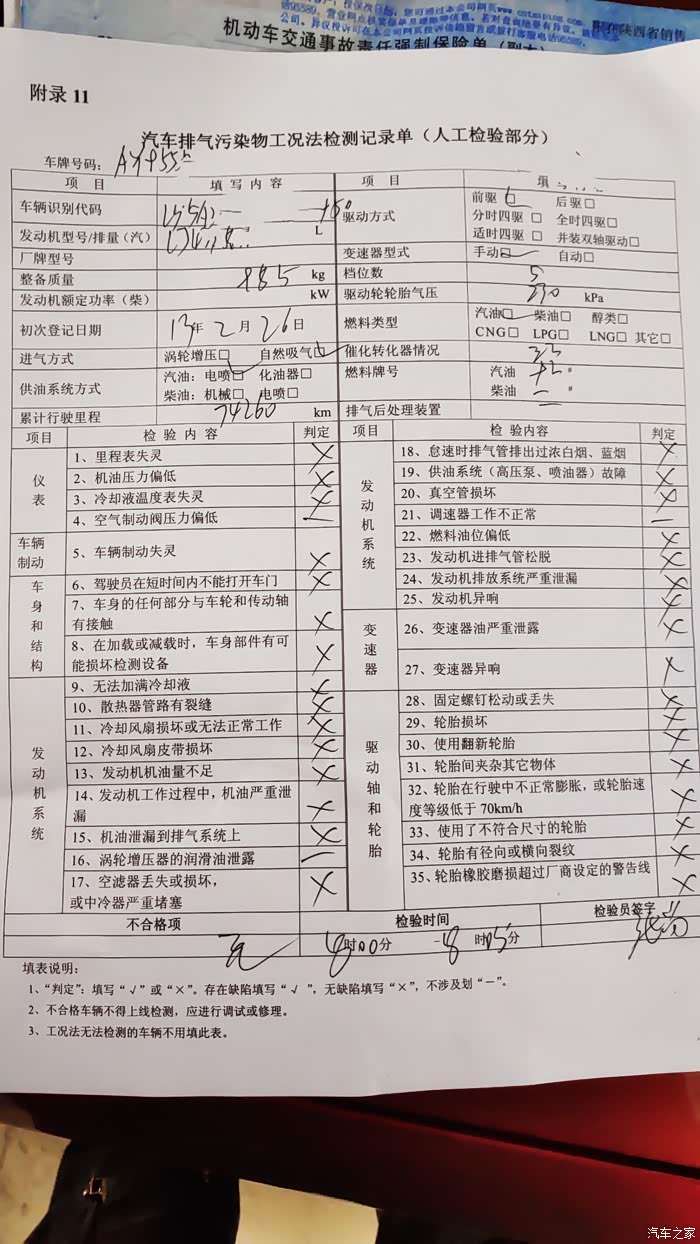 机动车交通事故责任强制保险单（副本）
附录 11
汽车排气污染物工况法检测记录单（人工检验部分）
车牌号码：
项 目 填 写 内 容 项 目
车辆识别代码 驱动方式 前驱□ 后驱□
分时四驱□ 全时四驱□
适时四驱□ 并装双轴驱动□
发动机型号/排量（汽） L
厂牌型号 变速器型式 手动□ 自动□
整备质量 885 kg 档位数 5
发动机额定功率（柴） kW 驱动轮轮胎气压 230 kPa
初次登记日期 13年 2月 26日 燃料类型 汽油□ 柴油□ 醇类□
CNG□ LPG□ LNG□ 其它□
进气方式 涡轮增压□ 自然吸气□ 催化转化器情况
供油系统方式 汽油：电喷□ 化油器□ 燃料牌号 汽油 #
柴油：机械□ 电喷□ 柴油 — #
累计行驶里程 74260 km 排气后处理装置
项目 检 验 内 容 判定 项目 检 验内容 判定
仪表
1、里程表失灵 ×
2、机油压力偏低 ×
3、冷却液温度表失灵 ×
4、空气制动阀压力偏低 —
车辆制动
5、车辆制动失灵 ×
车身和结构
6、驾驶员在短时间内不能打开车门 ×
7、车身的任何部分与车轮和传动轴
有接触 ×
8、在加载或减载时，车身部件有可
能损坏检测设备 ×
发动机系统
9、无法加满冷却液 ×
10、散热器管路有裂缝 ×
11、冷却风扇损坏或无法正常工作 ×
12、冷却风扇皮带损坏 ×
13、发动机机油量不足 ×
14、发动机工作过程中，机油严重泄
漏 ×
15、机油泄漏到排气系统上 ×
16、涡轮增压器的润滑油泄露 —
17、空滤器丢失或损坏，
或中冷器严重堵塞 ×
发动机系统
18、怠速时排气管排出过浓白烟、蓝烟 ×
19、供油系统（高压泵、喷油器）故障 ×
20、真空管损坏 ×
21、调速器工作不正常 —
22、燃料油位偏低 ×
23、发动机进排气管松脱 ×
24、发动机排放系统严重泄漏 ×
25、发动机异响 ×
变速器
26、变速器油严重泄露 ×
27、变速器异响 ×
驱动轴和轮胎
28、固定螺钉松动或丢失 ×
29、轮胎损坏 ×
30、使用翻新轮胎 ×
31、轮胎间夹杂其它物体 ×
32、轮胎在行驶中不正常膨胀，或轮胎速
度等级低于 70km/h ×
33、使用了不符合尺寸的轮胎 ×
34、轮胎有径向或横向裂纹 ×
35、轮胎橡胶磨损超过厂商设定的警告线 ×
不合格项 检验时间 检验员签字
无 8时00分 －8时05分
填表说明：
1、“判定”：填写“√”或“×”。存在缺陷填写“√ ”，无缺陷填写“×”，不涉及划“－”。
2、不合格车辆不得上线检测，应进行调试或修理。
3、工况法无法检测的车辆不用填此表。
汽车之家